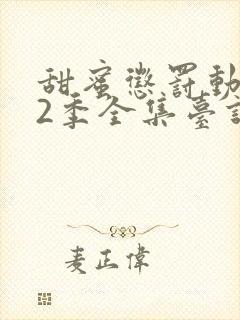 甜蜜懲罰動
2季全集臺詞
麦正偉